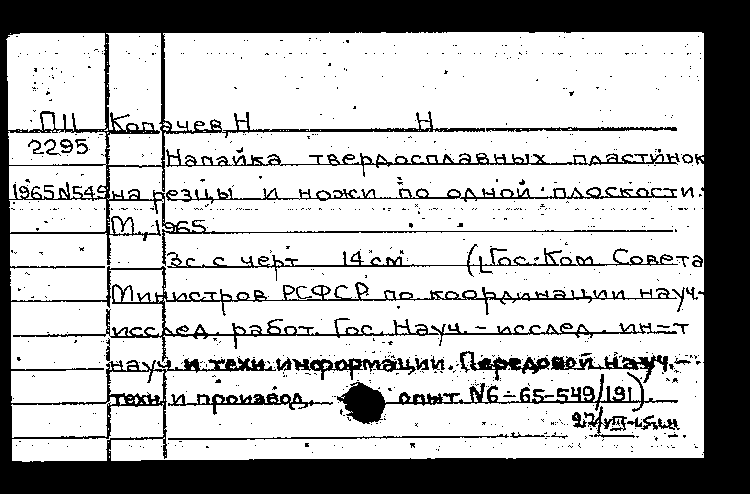 П11 Копачев, Н Н
2295
Напайка твердосплавных пластинок
1965 N549 на резцы и ножи по одной плоскости.
М., 1965.
3с. с черт 14 см (Гос. Ком Совета
Министров РСФСР по координации науч.-
исслед. работ. Гос. Науч.-исслед. ин-т
науч. и техн. информации. Передовой науч.-
техн и производ. опыт. N6-65-549/191).